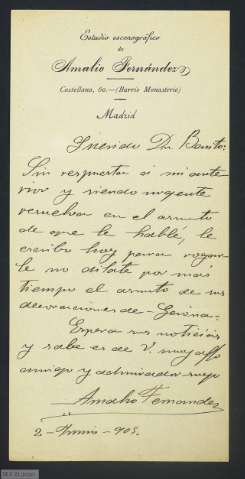 Estudio escenográfico
de
Amalio Fernández
Castellana, 60.—(Barrio Monasterio)
Madrid
Querido Dn. Benito:
Sin respuesta a mi ante
rior y siendo urgente
resolver en el asunto
de que le hablé, le
escribo hoy para rogar
le no dilate por más
tiempo el asunto de sus
decoraciones de Gerona.
Espera sus noticias
y sabe es de V. muy affo
amigo y admirador suyo
Amalio Fernandez
2 - Junio - 905.